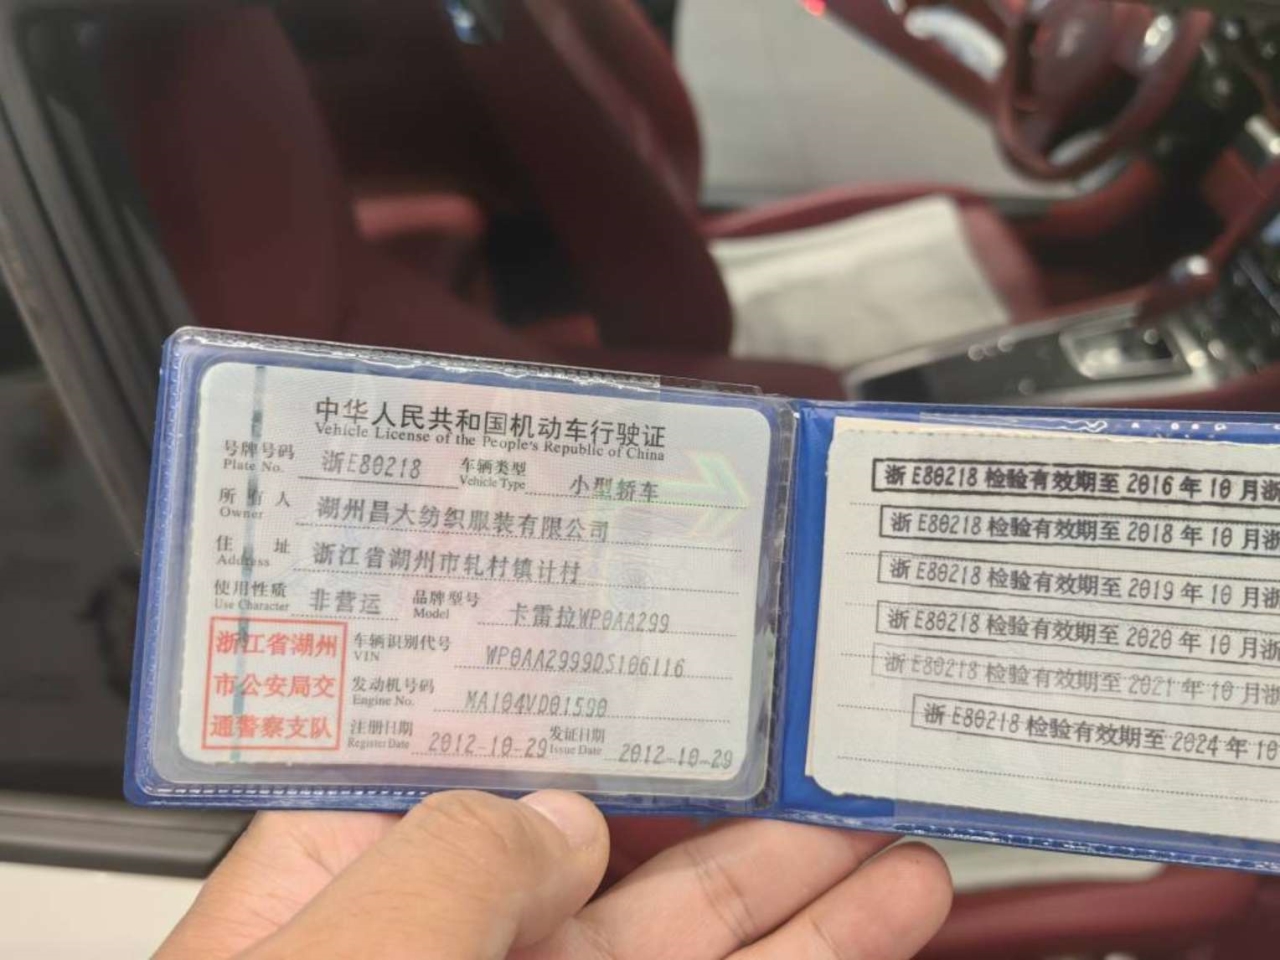 中华人民共和国机动车行驶证
Vehicle License of the People's Republic of China
号牌号码 浙E80218 车辆类型 小型轿车
Plate No. Vehicle Type
所有人 湖州昌大纺织服装有限公司
Owner
住址 浙江省湖州市轧村镇计村
Address
使用性质 非营运 品牌型号 卡雷拉WP0AA299
Use Character Model
浙江省湖州
市公安局交
通警察支队
车辆识别代号 WP0AA2999DS106116
VIN
发动机号码 MA104VD01590
Engine No.
注册日期 2012-10-29 发证日期 2012-10-29
Register Date Issue Date
浙E80218检验有效期至2016年10月浙
浙E80218检验有效期至2018年10月浙
浙E80218检验有效期至2019年10月浙
浙E80218检验有效期至2020年10月浙
浙E80218检验有效期至2021年10月浙
浙E80218检验有效期至2024年10